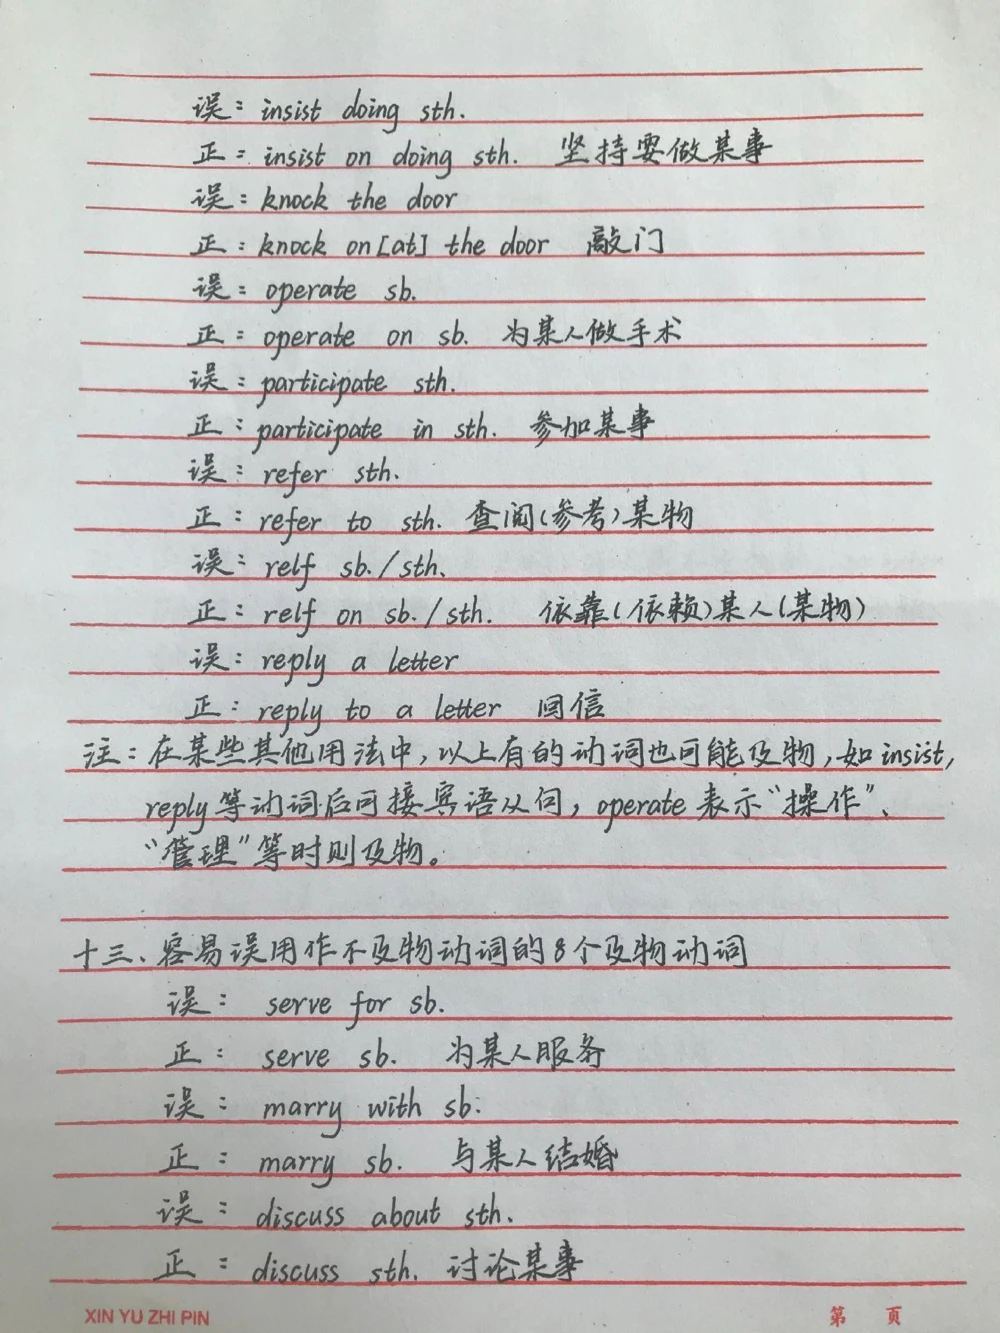 误：insist doing sth.
正：insist on doing sth. 坚持要做某事
误：knock the door
正：knock on[at] the door 敲门
误：operate sb.
正：operate on sb. 为某人做手术
误：participate sth.
正：participate in sth. 参加某事
误：refer sth.
正：refer to sth. 查阅(参考)某物
误：relf sb./sth.
正：relf on sb./sth. 依靠(依赖)某人(某物)
误：reply a letter
正：reply to a letter 回信
注：在某些其他用法中，以上有的动词也可能及物，如insist,
reply等动词后可接宾语从句，operate表示“操作”、
“管理”等时则及物。
十三、容易误用作不及物动词的8个及物动词
误：serve for sb.
正：serve sb. 为某人服务
误：marry with sb.
正：marry sb. 与某人结婚
误：discuss about sth.
正：discuss sth. 讨论某事
XIN YU ZHI PIN 第 页